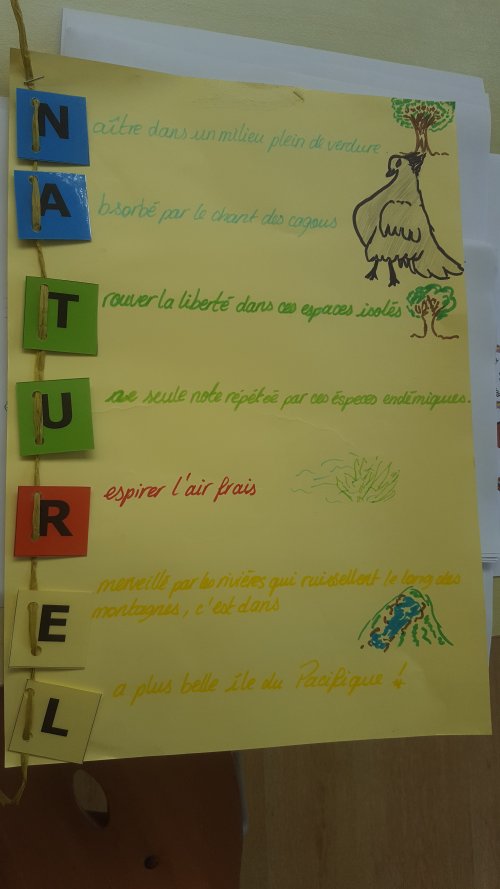 N aître dans un milieu plein de verdure
A bsorbé par le chant des cagous
T rouver la liberté dans ces espaces isolés
U ne seule note répétée par ces éspeces endémiques.
R espirer l'air frais
E merveillé par les rivières qui ruissellent le long des
montagnes, c'est dans
L a plus belle île du Pacifique !